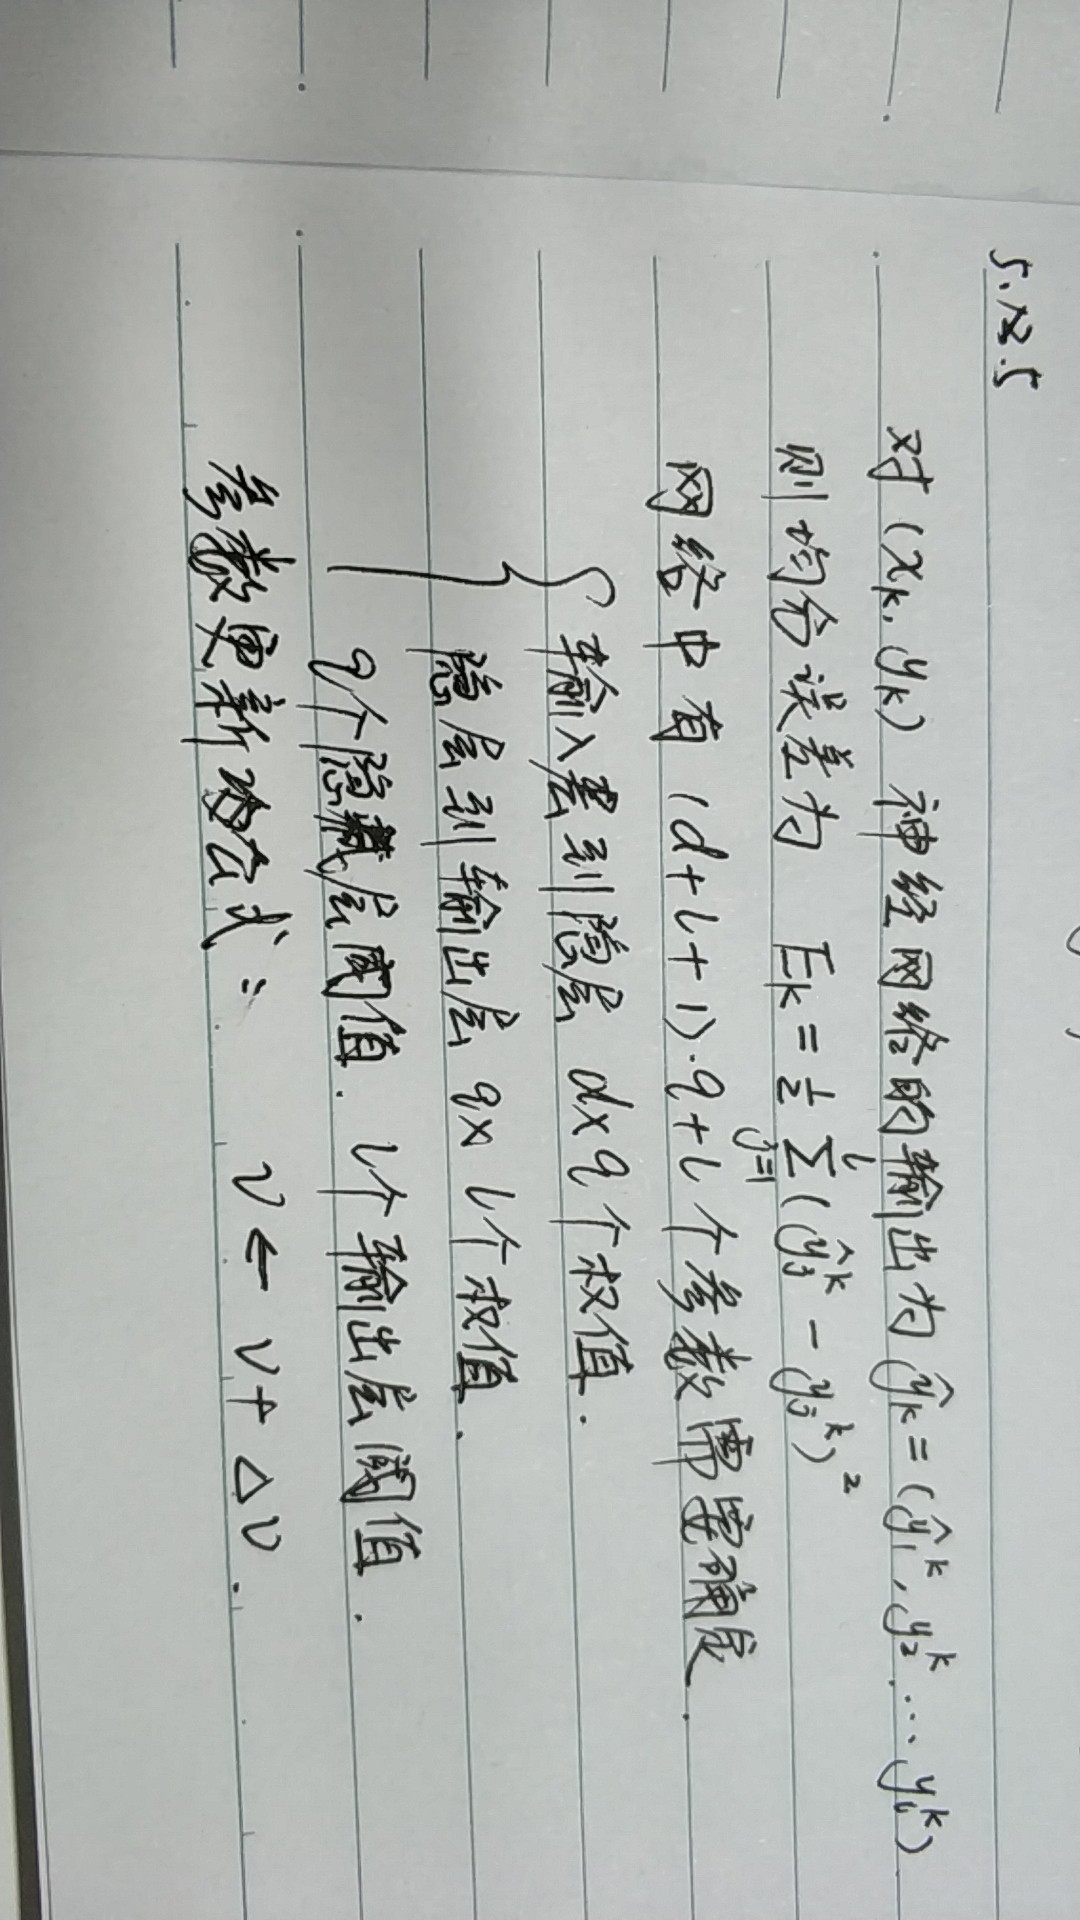 5.
对 (xₖ, yₖ) 神经网络的输出为 ŷₖ = (ŷ₁ᵏ, y₂ᵏ … yₗᵏ)
则均分误差为 Eₖ = ½ Σⱼ₌₁ˡ (ŷⱼᵏ - yⱼᵏ)²
网络中有 (d+l+1)·q+l 个参数需要确定.
{ 输入层到隐层 d×q 个权值.
隐层到输出层 q× l个权值.
q个隐藏层阈值. l个输出层阈值.
参数更新公式: v ← v + Δv.